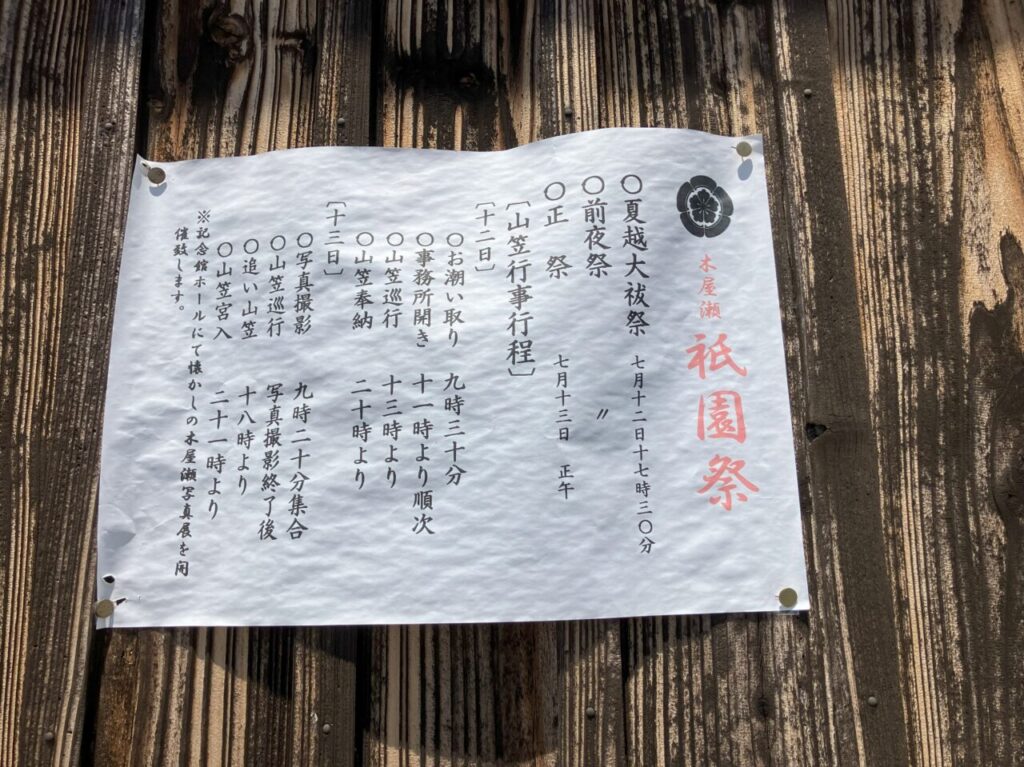 木屋瀬 祇園祭
○夏越大祓祭 七月十二日十七時三〇分
○前夜祭 〃
○正 祭 七月十三日 正午
〔山笠行事行程〕
〔十二日〕
○お潮い取り 九時三十分
○事務所開き 十一時より順次
○山笠巡行 十三時より
○山笠奉納 二十時より
〔十三日〕
○写真撮影 九時二十分集合
○山笠巡行 写真撮影終了後
○追い山笠 十八時より
○山笠宮入 二十一時より
※記念館ホールにて懐かしの木屋瀬写真展を開
催致します。